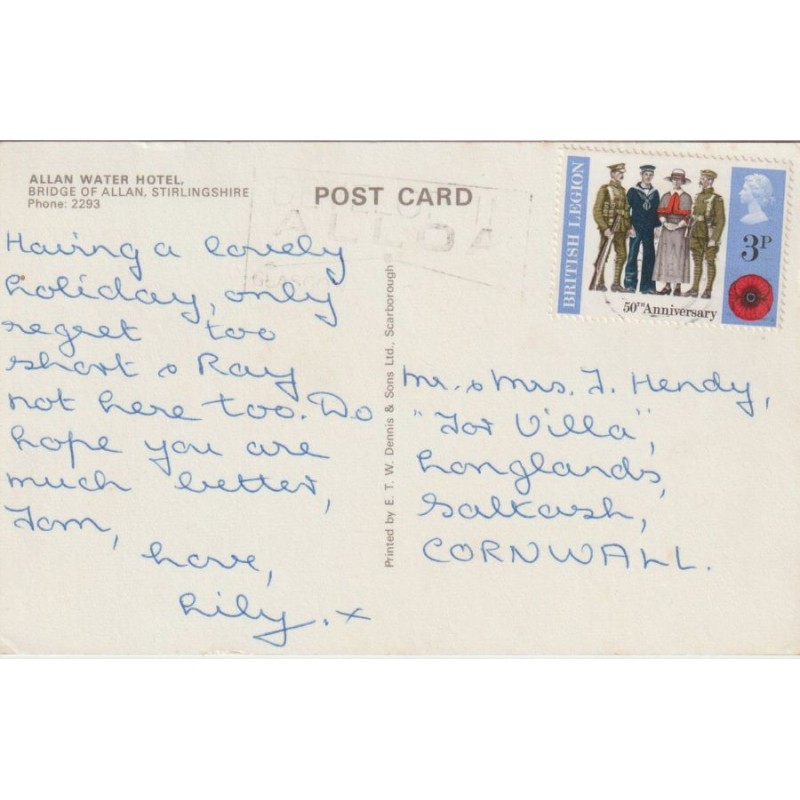 ALLAN WATER HOTEL,
BRIDGE OF ALLAN, STIRLINGSHIRE
Phone: 2293
POST CARD
ALLOA
BRITISH LEGION
3P
50TH Anniversary
Having a lovely
holiday, only
regret too
short & Ray
not here too. Do
hope you are
much better,
Tom,
Love,
Lily. x
Printed by E. T. W. Dennis & Sons Ltd., Scarborough
Mr. & Mrs. T. Hendy,
"Tor Villa",
Longlands,
Saltash,
CORNWALL.